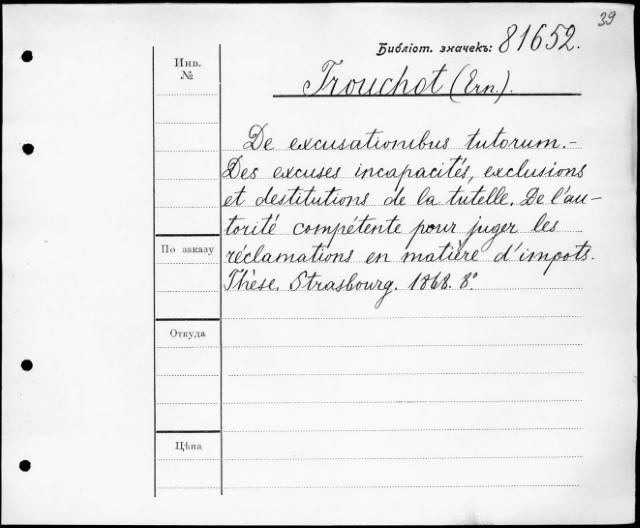 39
Библіот. значекъ: 81652.
Инв.
№
Trouchot (Ern.).
De excusationibus tutorum.-
Des excuses incapacités, exclusions
et destitutions de la tutelle. De l'au-
torité compétente pour juger les
réclamations en matière d'impots.
Thèse. Strasbourg. 1868. 8°
По заказу
Откуда
Цѣна